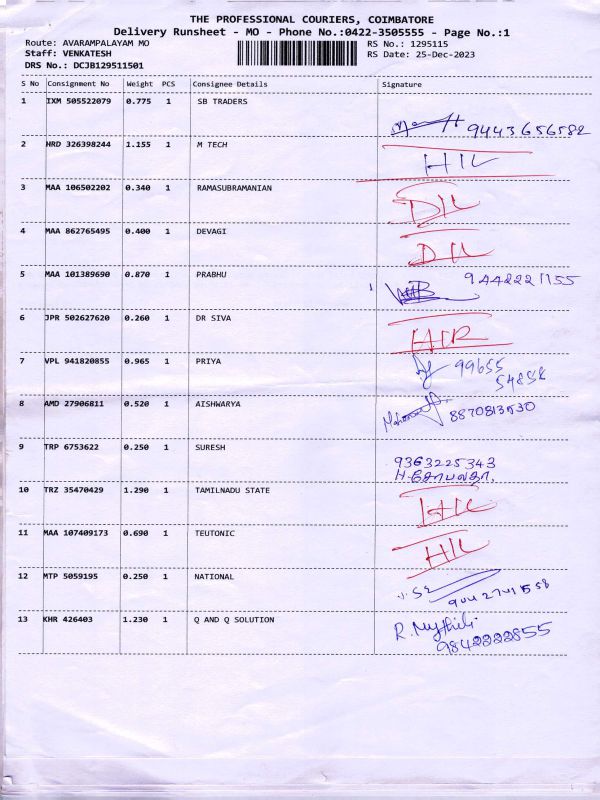 THE PROFESSIONAL COURIERS, COIMBATORE
Delivery Runsheet - MO - Phone No.:0422-3505555 - Page No.:1
Route: AVARAMPALAYAM MO RS No.: 1295115
Staff: VENKATESH RS Date: 25-Dec-2023
DRS No.: DCJB129511501
S No Consignment No Weight PCS Consignee Details Signature
1 IXM 505522079 0.775 1 SB TRADERS
9443656582
2 HRD 326398244 1.155 1 M TECH
HIL
3 MAA 106502202 0.340 1 RAMASUBRAMANIAN
DIL
4 MAA 862765495 0.400 1 DEVAGI
DIL
5 MAA 101389690 0.870 1 PRABHU 9442221155
6 JPR 502627620 0.260 1 DR SIVA
7 VPL 941820855 0.965 1 PRIYA 99655
54858
8 AMD 27906811 0.520 1 AISHWARYA 8870813530
9 TRP 6753622 0.250 1 SURESH
9363225343
10 TRZ 35470429 1.290 1 TAMILNADU STATE
HIL
11 MAA 107409173 0.690 1 TEUTONIC
HIL
12 MTP 5059195 0.250 1 NATIONAL
13 KHR 426403 1.230 1 Q AND Q SOLUTION
R. Mythili
9842222855